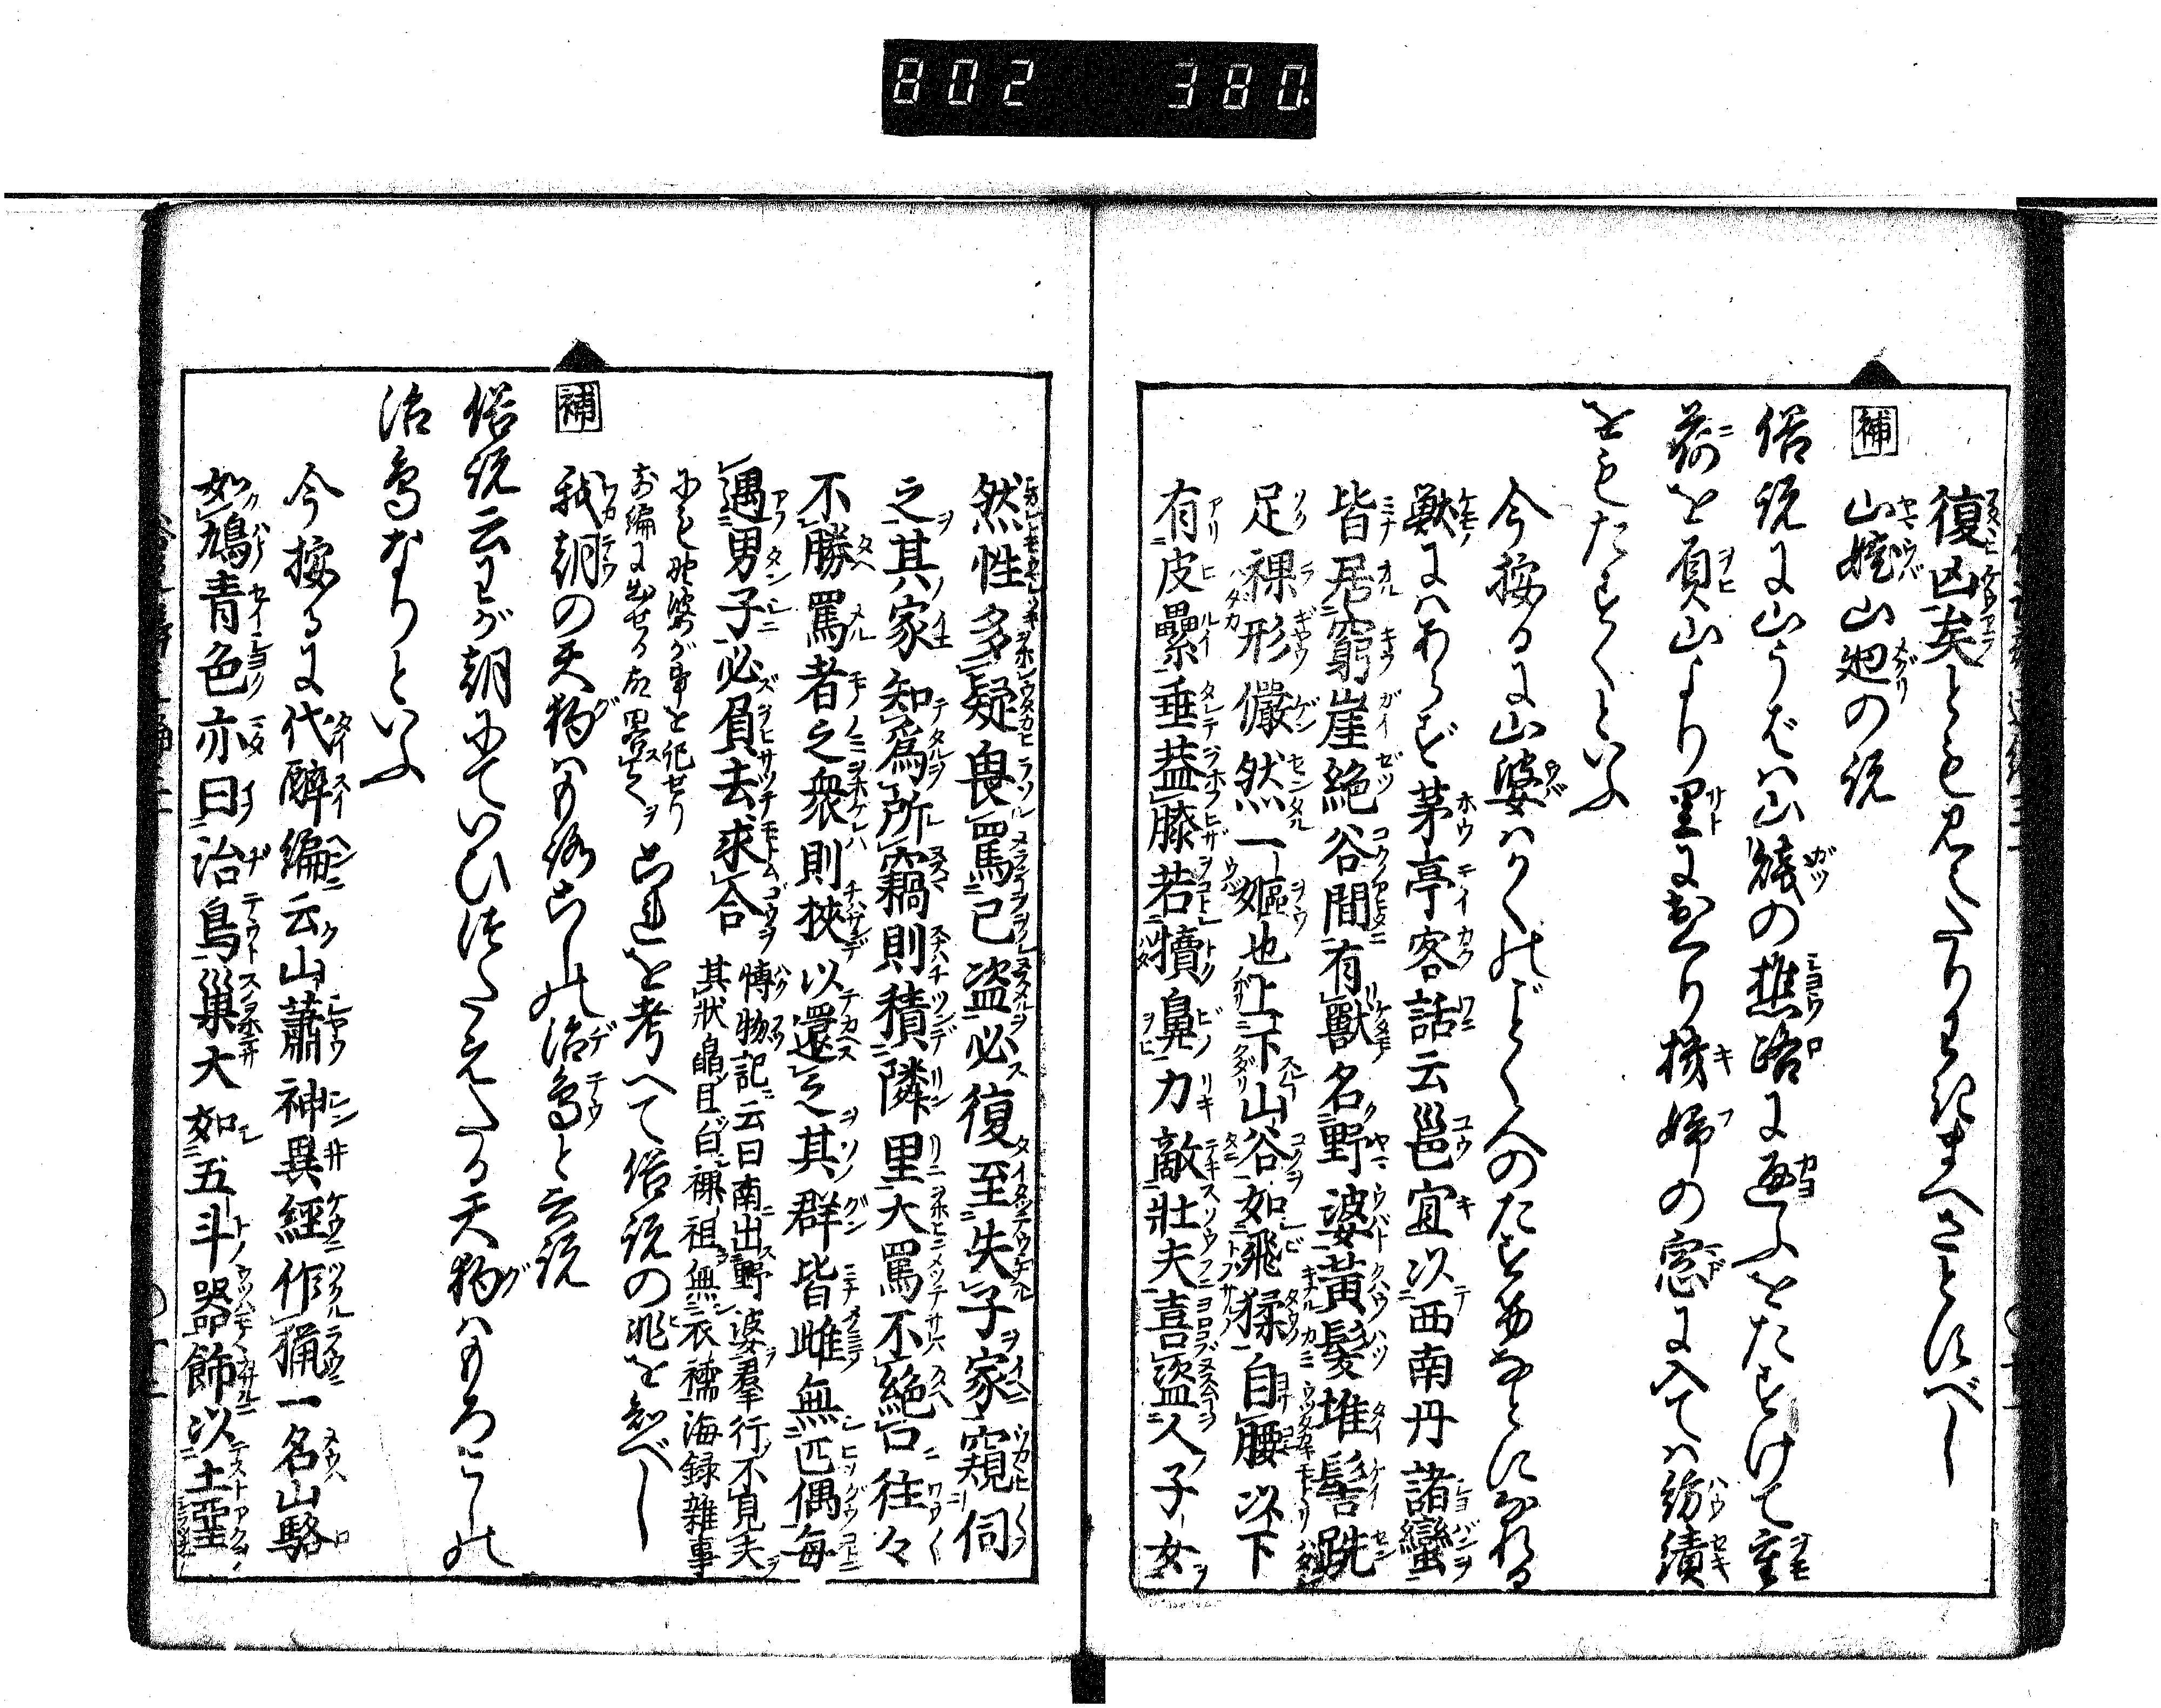 802 380.
復凶矣とも見えたりわきまへさとすべし
補 山姥山廻の説
俗説に山うばは山賤の樵路に通ふをたすけて重
荷を負山より里におくり機婦の窓に入ては紡績
をもたすくといふ
今按るに山婆はかくのごとく人のたすけなどになれる
獣にはあらず茅亭客話云邕宜以西南丹諸蠻
皆居窮崖絶谷間有獸名野婆黄髪堆髻跣
足裸形儼然一嫗也上下山谷如飛猱自腰以下
有皮纍垂葢膝若犢鼻力敵壯夫喜盗人子女
然性多疑畏罵已盗必復至失子家窺伺
之其家知爲所竊則積隣里大罵不絶口往々
不勝罵者之衆則挾以還之其群皆雌無匹偶毎
遇男子必負去求合 博物記云曰南出野婆羣行不見夫
其狀皛目白裸袒無衣襦海録雜事
にも野婆が事を記せり
前編に出せる故畧之 これを考へて俗説の非を知べし
補 我朝の天狗はもろこしの治鳥と云説
俗説云わが朝にていひ伝えたる天狗はもろこしの
治鳥なりといふ
今按るに代醉編云山蕭神異經作猵一名山駱
如鳩青色亦曰治鳥巣大如五斗器飾以土堊